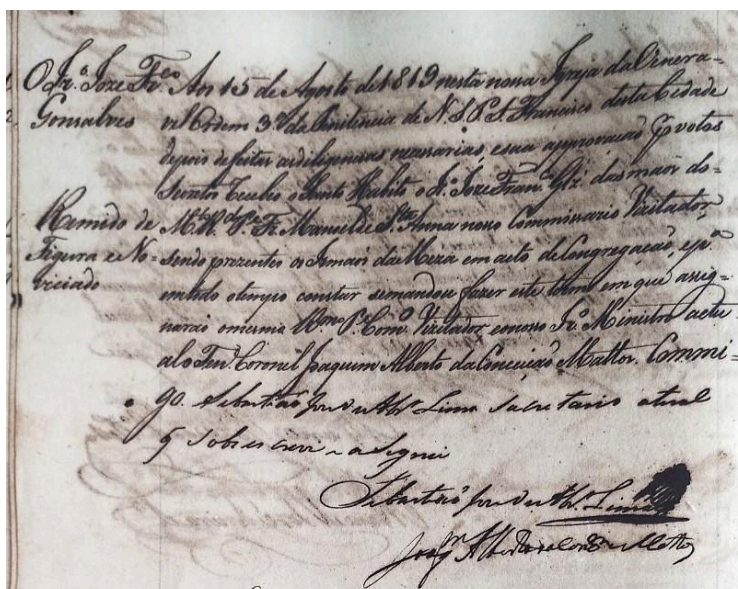 O Ir.º Joze Fr.co
Gonsalves
Remido de
Figura e No-
viciado
Aos 15 de Agosto de 1819 nesta nossa Igreja da Venera-
vel Ordem 3ª da Penitencia de N. S. P. S. Francisco desta Cidade
depois de feitas as diligencias necessarias, e sua approvacaõ p votos
secretos o Santo Habito o Ir. Joze Fran.co Glz' das maõs do
M.to R.do P.e Fr. Manuel de S.ta Anna nosso Commissario Vizitador,
sendo prezentes os Irmaõs da Meza em acto de Congregacaõ, e p.ª
em todo o tempo constar se mandou fazer este termo em que assig-
naraõ o mesmo P.e Com.º Vizitador, e nosso Ir.º Ministro actu-
al o Ten.e Coronel Joaquim Alberto da Conceicaõ Mattos. Commi-
go Sebastiaõ Lima Sacretario atual
q Sobescrevi e asignei
Sebastiaõ Lima
Joaq.m Alberto da Con.cam Mattos